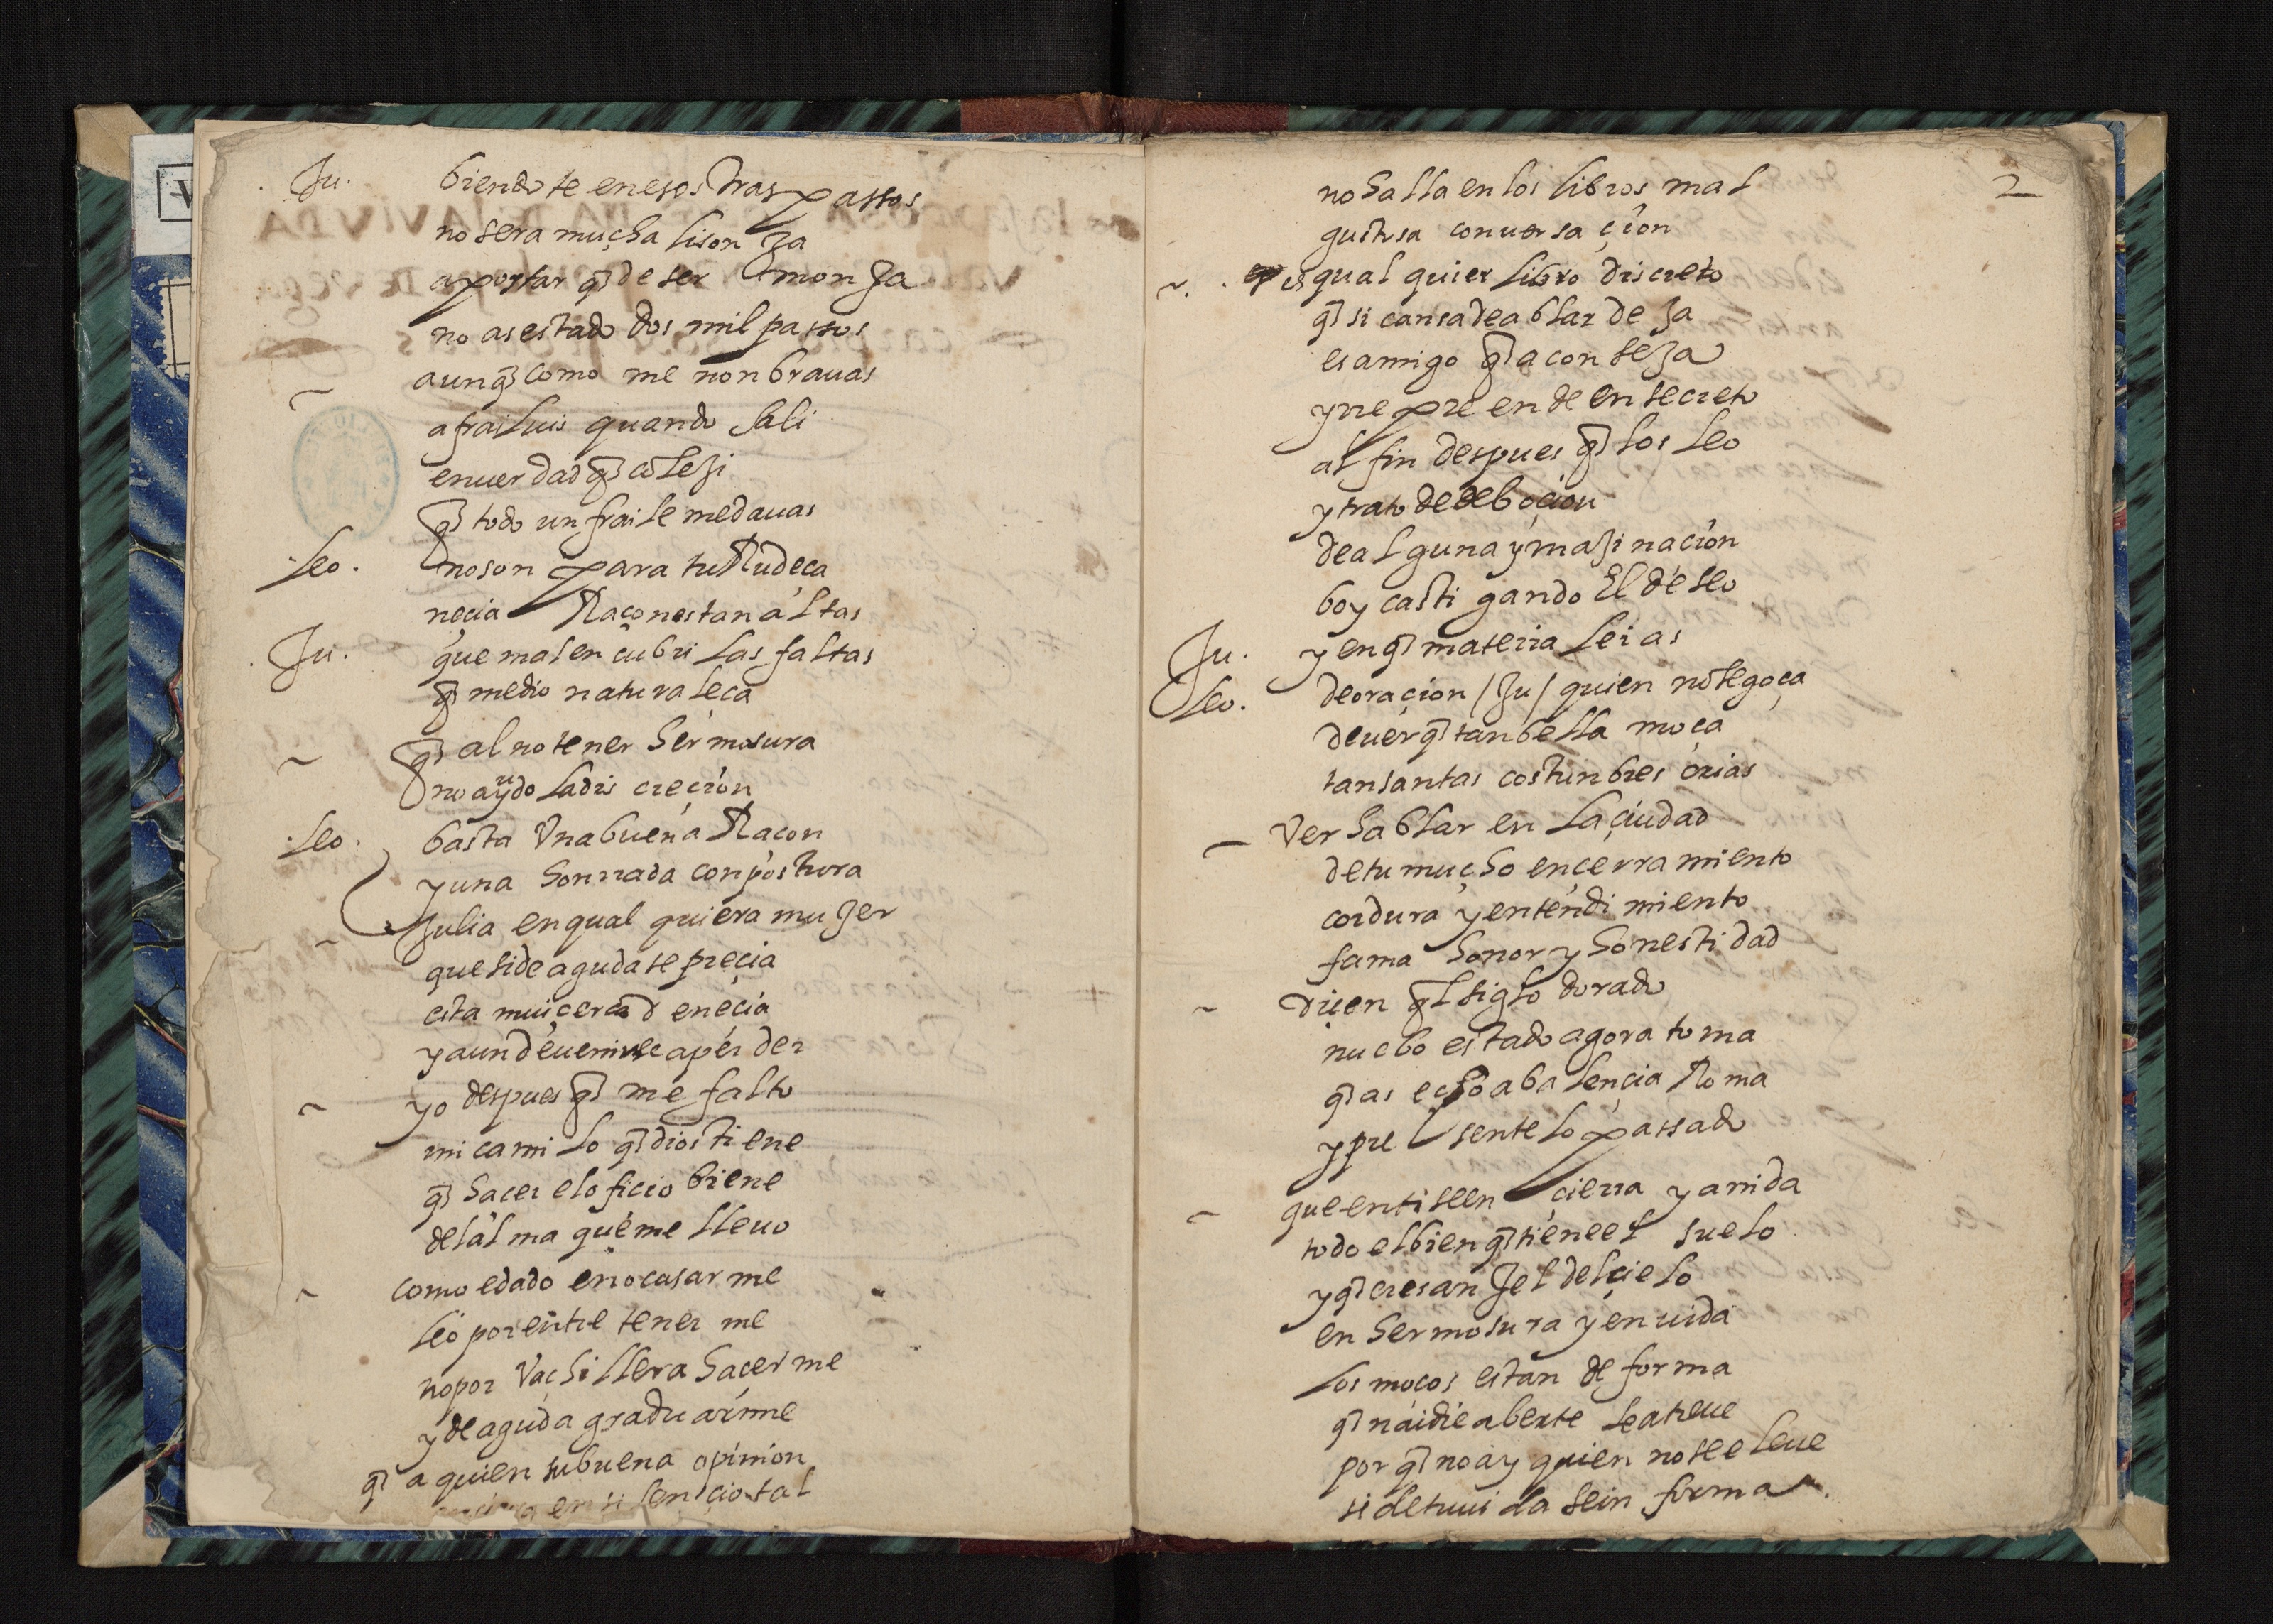 Ju. biendo te en esos traspassos
no sera mucha lison ja
apostar q̃ de ser monja
no as estado dos mil passos
aunq̃ como me nonbrauas
a frai luis quando sali
en uerdad q̃ coleji
q̃ todo un fraile me dauas
Leo. no son para tu Rudeça
neçia Raçones tan altas
Ju. que mal encubri las faltas
q̃ medio naturaleça
q̃ al no tener hermosura
no a auydo la discreçion
Leo. basta Una buena Raçon
y una honrrada conpostura
Julia en qual quiera mujer
que si de aguda se preçia
esta mui çerca d e neçia
y aun de uenirse a perder
yo despues q̃ me falto
mi camilo q̃ dios tiene
q̃ haçer el ofiçio biene
del alma que me lleuo
como e dado en ocasarme
leo por entre tener me
no por Vachillera haçerme
y de aguda graduarme
q̃ a quien su buena opinion
en si lençio tal
2
no halla en los libros mal
gustosa conuersaçion
es qual quier libro discreto
q̃ si cansa de ablar deja
es amigo q̃ aconseja
y rrepreende en secreto
al fin despues q̃ los leo
y trato de deboçion
de alguna ymajinaçion
boy castigando El deseo
Ju. y en q̃ materia leias
Leo. de oraçion / Ju / quien no se goça
de uer q̃ tan bella moça
tan santas costunbres crias
Ver hablar en la çiudad
de tu mucho ençerramiento
cordura y entendimiento
fama honor y honestidad
diçen q̃l siglo dorado
nuebo estado agora toma
q̃ as echo a balençia Roma
y presente lo passado
que en ti se ençierra y anida
todo el bien q̃ tiene el suelo
y q̃ eres anjel del çielo
en hermosura y en uida
los moços estan de forma
q̃ naidie a berte se atreue
por q̃ no ay quien no se eleue
si de tu uida se informa